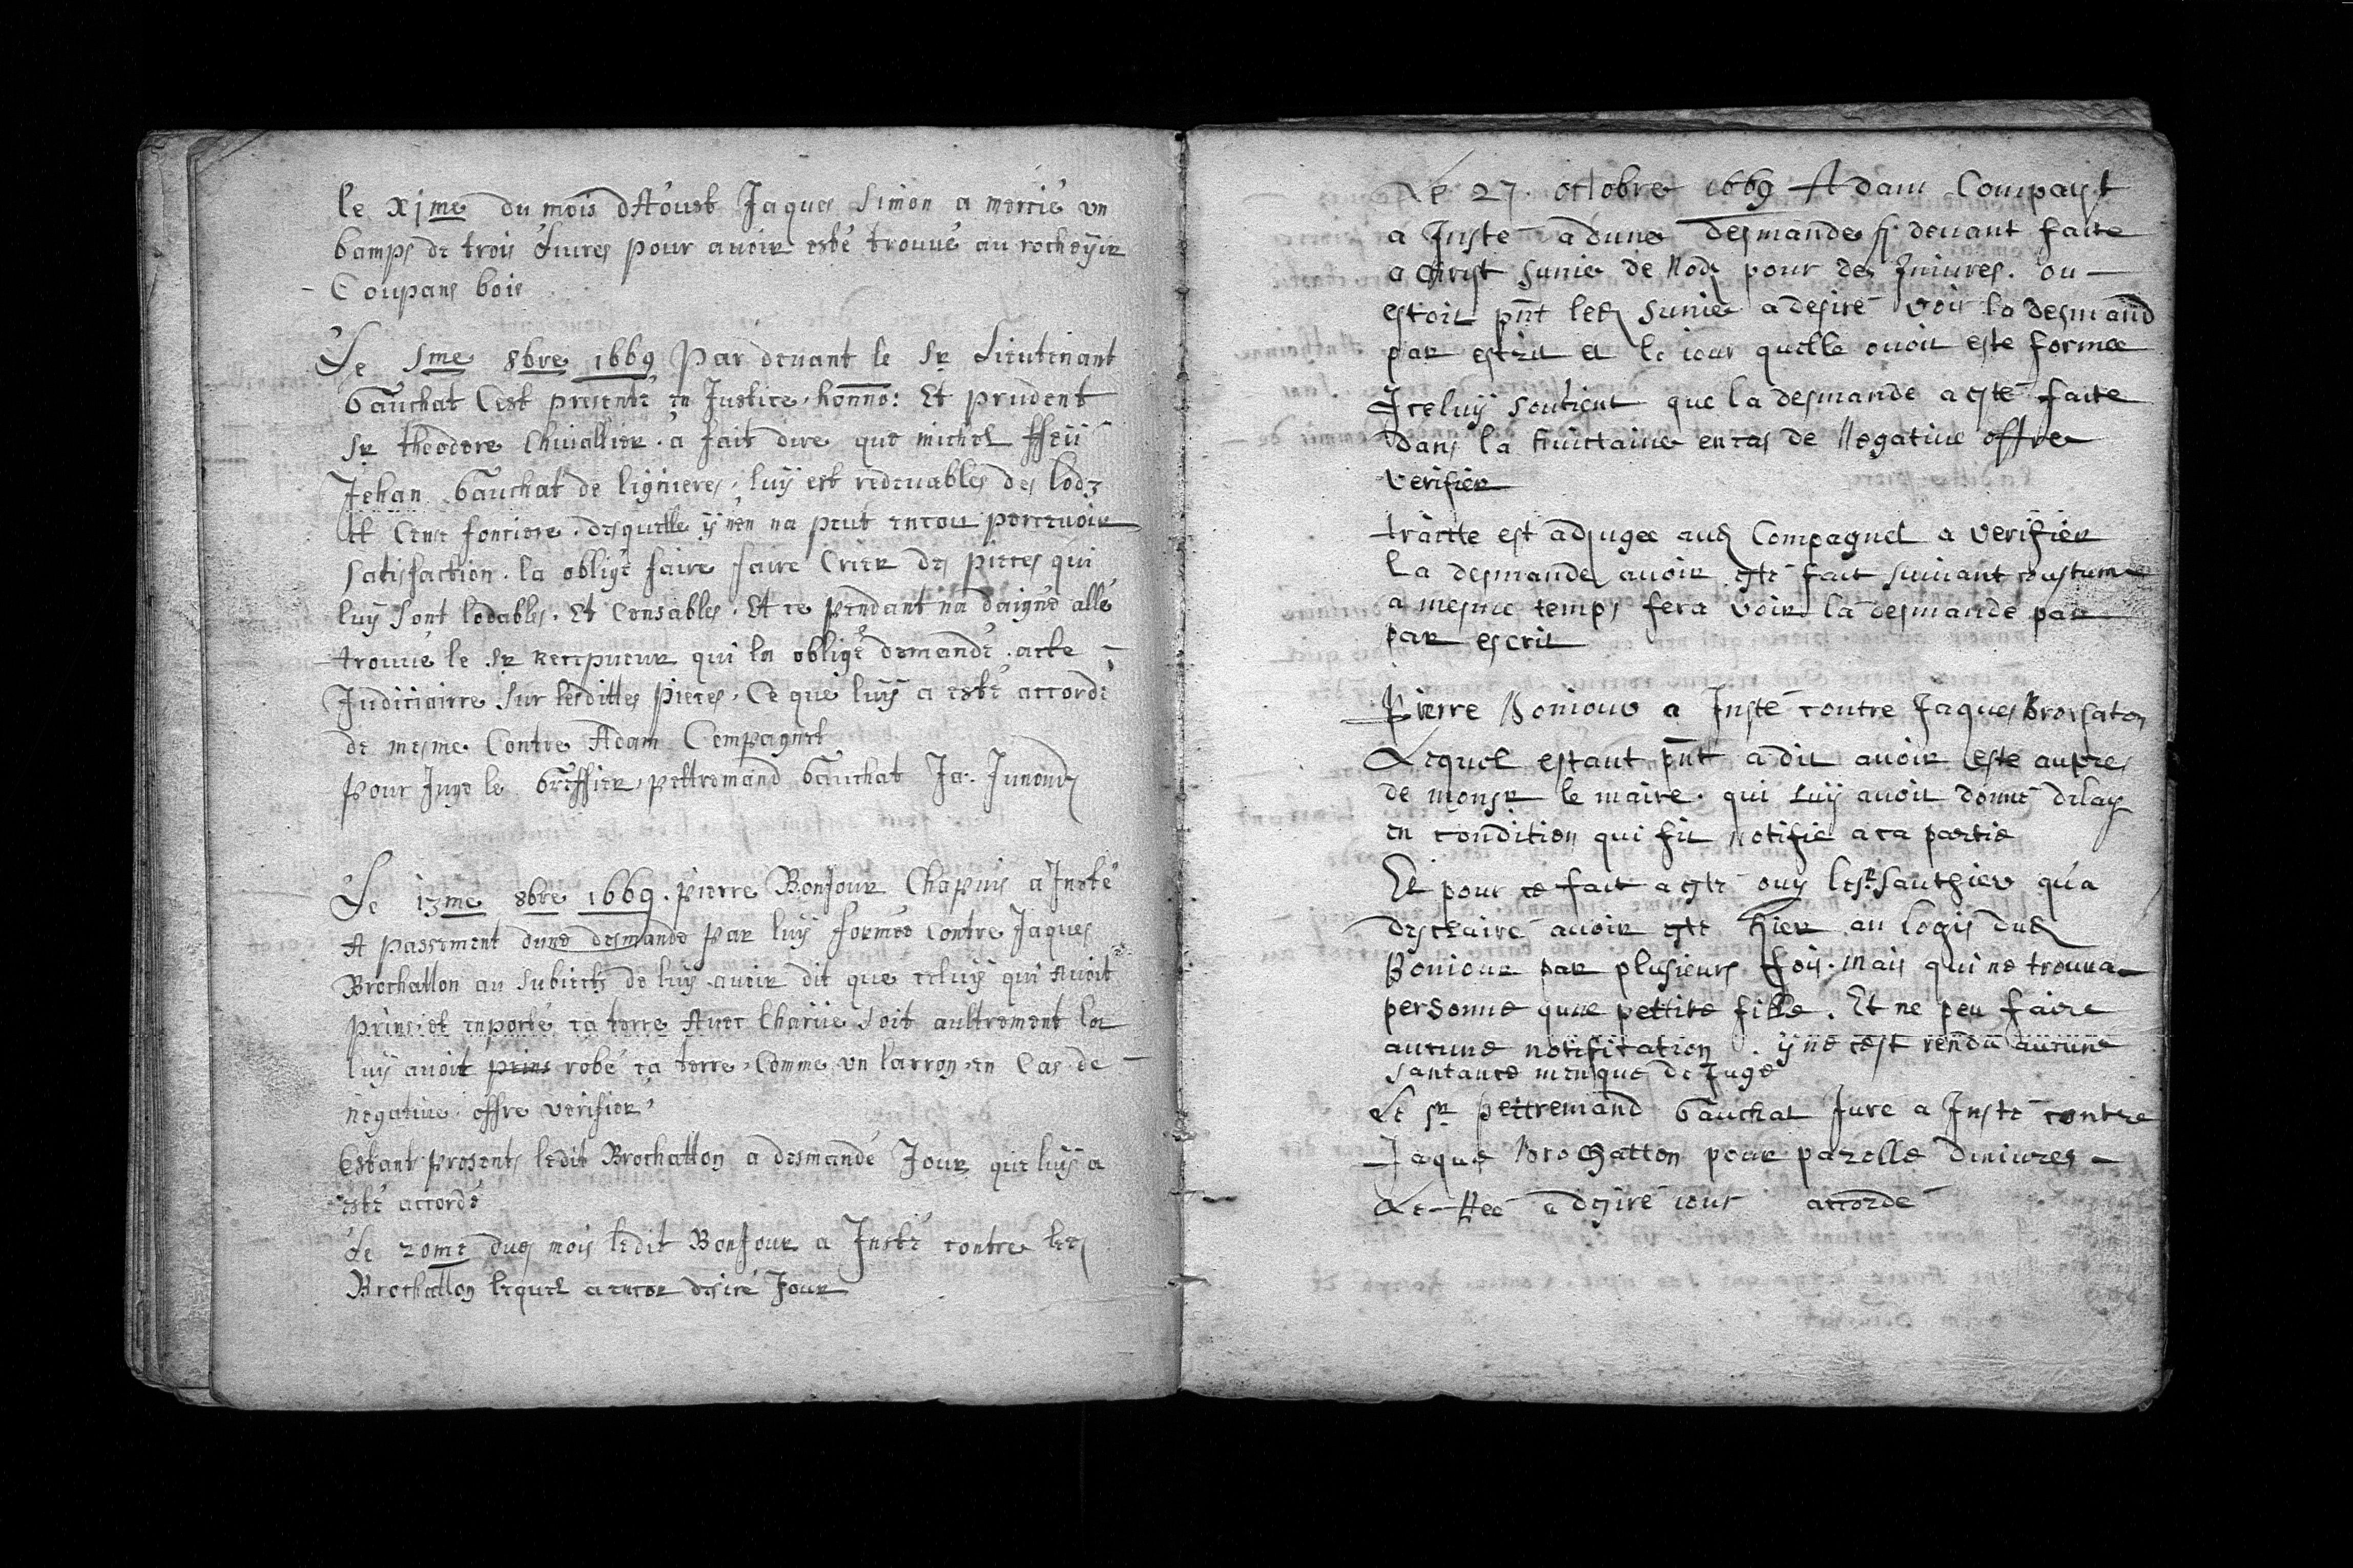 le xjme du mois dAoust Jaques Simon a mercié vn
bamps de trois Liures pour auoir esté trouué au rocheÿir
Coupans bois
Le 5me 8bre 1669 Par deuant le Sr Lieutenant
Gauchat C'est presenté en Justice honno: Et prudent
Sr theodore Chiuallier a fait dire que michel ffeü
Jehan Gauchat de lignieres, luÿ est redeuables des lodz
Et Cense fonciere desquelle ÿ nen na peut encou perceuoir
Satisfaction la obligé faire faire Crier des pieces qui
luÿ sont lodables Et Censables Et ce pendant na daigné allé
trouué le Sr Recepueur qui la obligé demandé acte
Judiciairre Sur lesdittes pieces, Ce que luÿ a esté accordé
de mesme Contre Adam Compagnet
Pour Juge le Greffier pettremand Gauchat Ja. Junend
Le 13me 8bre 1669. pierre BonJour Chapuis a Insté
A passement dune desmande Par luÿ formée contre Jaques
Brochatton au Subiects de luÿ auoir dit que celuÿ qui Auoit
prins et enporté ca terre Auec Charüe soit aultrement la
luÿ auoit prins robé ca terre Comme vn larron en Cas de
negatiue offre verifier
Estant presents ledit Brochatton a desmandé Jour que luÿ a
esté accordé
Le 20me dud mois ledit BonJour a Insté contre led
Brochatton lequel a encor desiré Jour
Le 27 octobre 1669 Adam Compagnet
a Insté a dune desmande sÿ deuant faite
a Christ Sunie de Nods pour des Iniures ou
estoit pnt led Sunie a desiré voir la desmand
par escrit et le iour quelle auoit este formee
Iceluÿ soutient que la desmande a esté faite
dans la huictaine en cas de Negatiue offre
verifier
traicte est adjugee aud Compagnet a verifier
la desmande auoir esté fait suiuant coustume
a mesme temps fera voir la desmande par
par escrit
Pierre Boniour a Insté contre Jaques Brochaton
Lequel estant pnt a dit auoir este aupres
de monsr le maire qui luÿ auoit donné delaÿ
en condition qui fit notifie a ca partie
Et pour ce fait a esté ouÿ le Sr Sauthier qu'a
desclairé auoir esté hier au logis dud
Boniour par plusieurs fois mais qui ne trouua
personne qune pettite fille. Et ne peu faire
aucune notification. ÿ ne cest rendu aucune
santance menque de Juge
Le Sr pettremand Gauchat Jure a Insté contre
Jaque Brochatton pour parolle diniures
Le Ree a desiré iour accordé